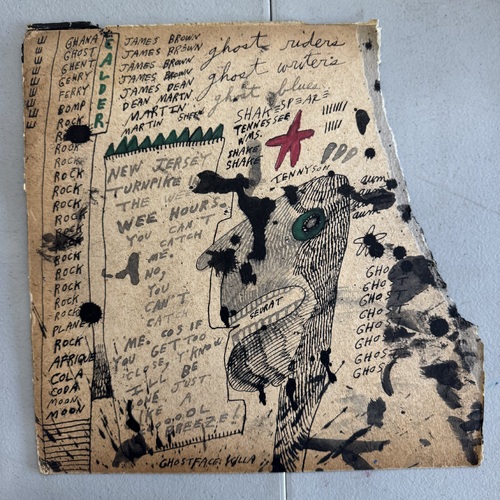 EEEEEEEE
GHANA
GHOST
GHENT
GENRY
FERRY
BOMP
ROCK
ROOK
ROCK
ROCK
ROCK
ROCK
ROOK
ROCK
ROCK
ROCK
ROCK
ROCK
ROCK
ROCK
PLANE
ROCK
AFRIQUE
COLA
CODA
MOON
MOON
CALDER
JAMES BROWN
JAMES BROWN
JAMES BROWN
JAMES BROWN
JAMES DEAN
DEAN MARTIN
MARTIN
MARTIN SHEEN
ghost riders
ghost writers
ghost blues
SHAKESPEARE
TENNESSEE
WMS.
SHAKE
SHAKE
TENNYSON
PPP
NEW JERSEY
TURNPIKE IN
THE WEE
WEE HOURS.
YOU CAN'T
CATCH
ME.
NO,
YOU
CAN'T
CATCH
ME. COS IF
YOU GET TOO
CLOSE, Y'KNOW
I'LL BE
GONE JUST
LIKE A
COOOL
BREEZE!
SEKRAT
aum
aum
aum
GHOST
GHOST
GHOST
GHOST
GHOST
GHOST
GHOST
GHOSTFACE KILLA